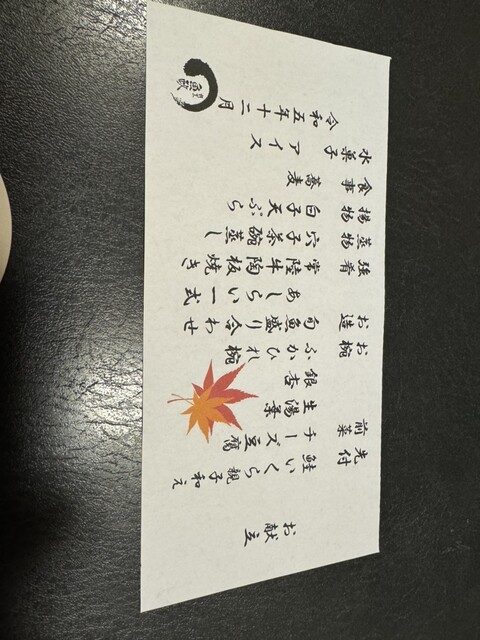 お献立
先付 鮭いくら親子和え
前菜 チーズ豆腐
生湯葉
銀杏
お椀 ふかひれ椀
お造 旬魚盛り合わせ
あしらい一式
強肴 常陸牛陶板焼き
蒸物 穴子茶碗蒸し
揚物 白子天ぷら
食事 蕎麦
水菓子 アイス
令和五年十二月